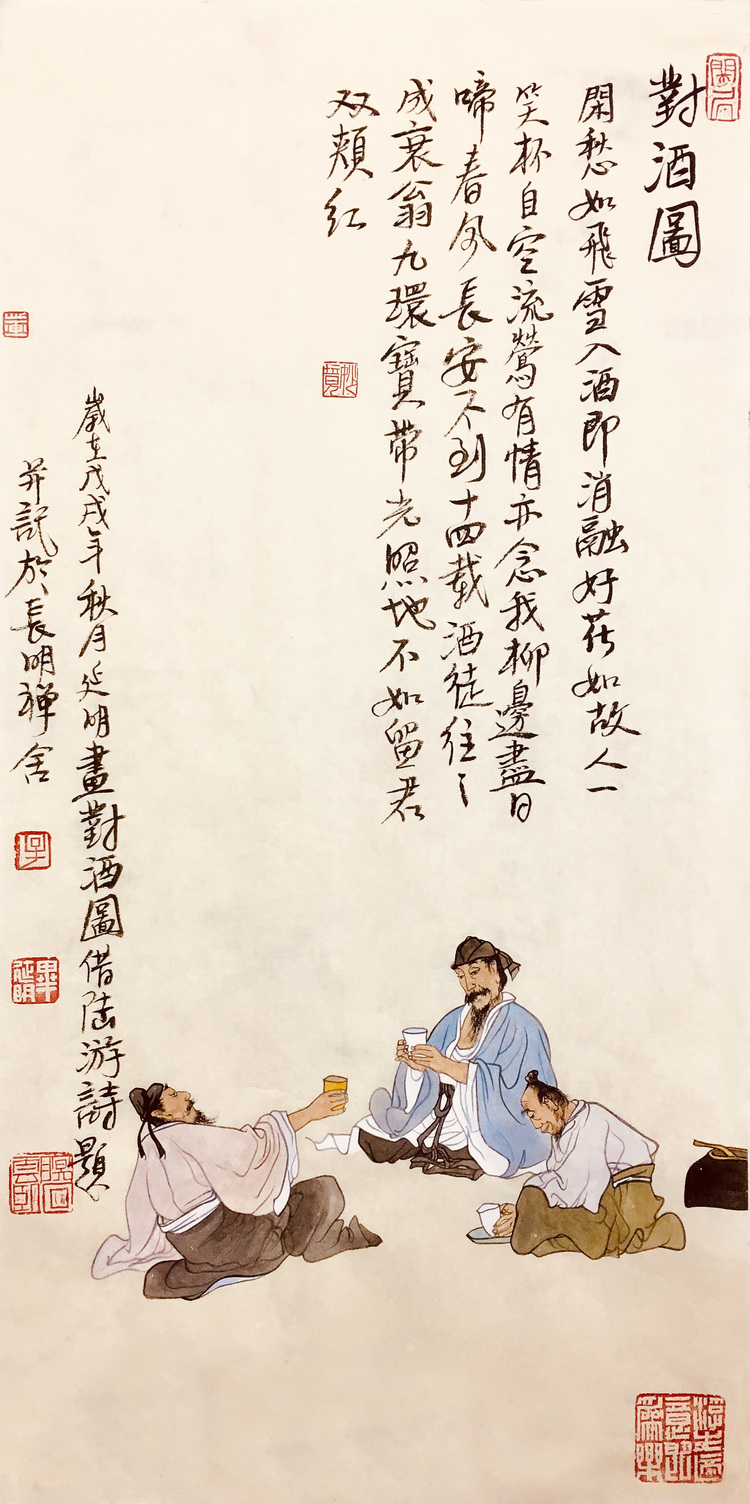 對酒圖
閑愁如飛雪入酒即消融好花如故人一
笑杯自空流鶯有情亦念我柳邊盡日
啼春風長安不到十四載酒徒往〻
成衰翁九環寶帶光照地不如留君
双頰紅
歲在戊戌年秋月延明畫對酒圖借陸游詩題
并記於長明禪舍